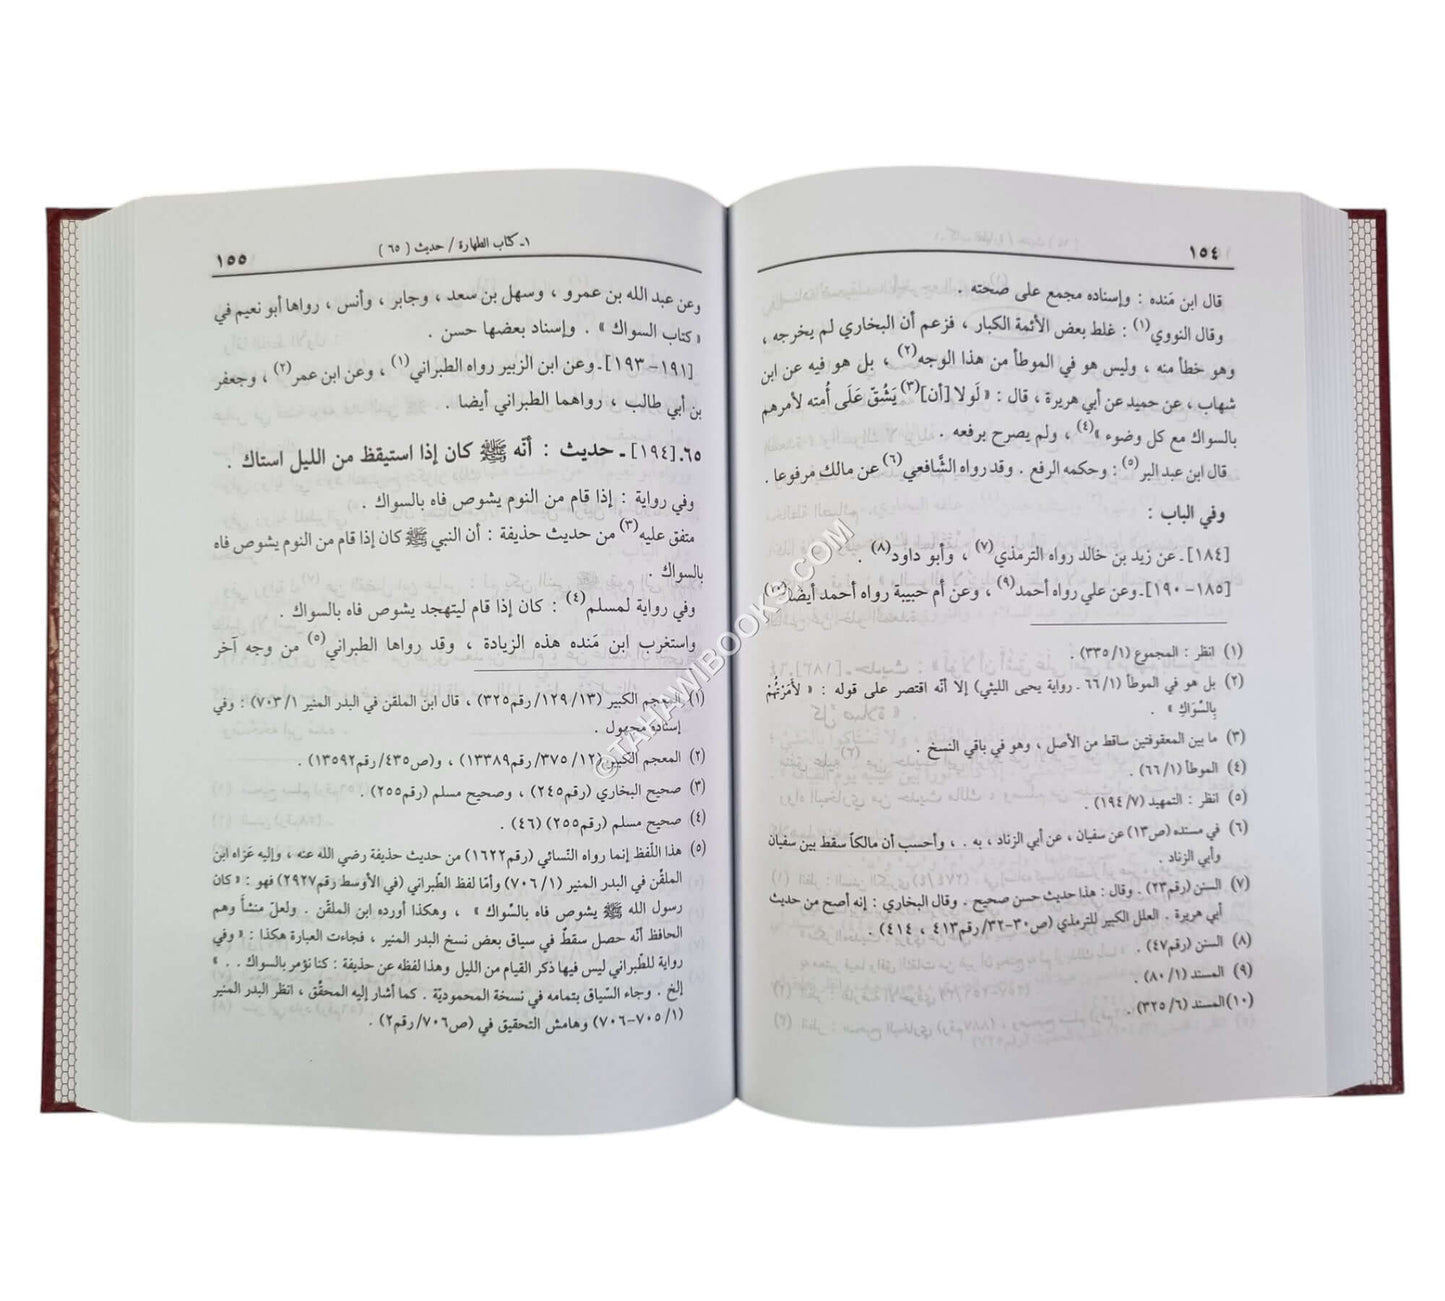 ١٥٤
قال ابن مَنده : وإسناده مجمع على صحته .
وقال النووي(١) : غلط بعض الأئمة الكبار ، فزعم أن البخاري لم يخرجه ،
وهو خطأ منه ، وليس هو في الموطأ من هذا الوجه(٢) ، بل هو فيه عن ابن
شهاب ، عن حميد عن أبي هريرة ، قال : « لَولا [أن](٣) يَشُقّ عَلَى أُمته لأمرهم
بالسواك مع كل وضوء »(٤) ، ولم يصرح برفعه .
قال ابن عبد البر(٥) : وحكمه الرفع . وقد رواه الشَّافعي(٦) عن مالك مرفوعا .
وفي الباب :
[١٨٤] ـ عن زيد بن خالد رواه الترمذي(٧) ، وأبو داود(٨) .
[١٨٥-١٩٠] ـ وعن علي رواه أحمد(٩) ، وعن أم حبيبة رواه أحمد أيضا
(١) انظر : المجموع (١/ ٣٣٥) .
(٢) بل هو في الموطأ (١/ ٦٦ ـ رواية يحيى الليثي) إلا أنّه اقتصر على قوله : « لأَمَرْتُهُمْ
بِالسِّوَاكِ » .
(٣) ما بين المعقوفتين ساقط من الأصل ، وهو في باقي النسخ .
(٤) الموطأ (١/ ٦٦) .
(٥) انظر : التمهيد (٧/ ١٩٤) .
(٦) في مسنده (ص١٣) عن سفيان ، عن أبي الزناد ، به . ، وأحسب أن مالكاً سقط بين سفيان
وأبي الزناد .
(٧) السنن (رقم٢٣) . وقال : هذا حديث حسن صحيح . وقال البخاري : إنه أصح من حديث
أبي هريرة . العلل الكبير للترمذي (ص٣٠-٣٢/ رقم٤١٣ ، ٤١٤) .
(٨) السنن (رقم٤٧) .
(٩) المسند (١/ ٨٠) .
(١٠) المسند (٦/ ٣٢٥) .
١ـ كتاب الطهارة / حديث ( ٦٥ )
١٥٥
وعن عبد الله بن عمرو ، وسهل بن سعد ، وجابر ، وأنس ، رواها أبو نعيم في
« كتاب السواك » . وإسناد بعضها حسن .
[١٩١-١٩٣] ـ وعن ابن الزبير رواه الطبراني(١) ، وعن ابن عمر(٢) ، وجعفر
بن أبي طالب ، رواهما الطبراني أيضا .
٦٥. [١٩٤] ـ حديث : أنّه ﷺ كان إذا استيقظ من الليل استاك .
وفي رواية : إذا قام من النوم يشوص فاه بالسواك .
متفق عليه(٣) من حديث حذيفة : أن النبي ﷺ كان إذا قام من النوم يشوص فاه
بالسواك .
وفي رواية لمسلم(٤) : كان إذا قام ليتهجد يشوص فاه بالسواك .
واستغرب ابن مَنده هذه الزيادة ، وقد رواها الطبراني(٥) من وجه آخر
(١) المعجم الكبير (١٣/ ١٢٩/ رقم٣٢٥) ، قال ابن الملقن في البدر المنير ١/ ٧٠٣) : وفي
إسناده مجهول .
(٢) المعجم الكبير (١٢/ ٣٧٥/ رقم١٣٣٨٩) ، و(ص٤٣٥/ رقم١٣٥٩٢) .
(٣) صحيح البخاري (رقم٢٤٥) ، وصحيح مسلم (رقم٢٥٥) .
(٤) صحيح مسلم (رقم٢٥٥) (٤٦) .
(٥) هذا اللّفظ إنما رواه النّسائي (رقم١٦٢٢) من حديث حذيفة رضي الله عنه ، وإليه عَزاه ابن
الملقّن في البدر المنير (١/ ٧٠٦) وأمّا لفظ الطّبراني (في الأوسط رقم٢٩٢٧) فهو : « كان
رسول الله ﷺ يشوص فاه بالسّواك » ، وهكذا أورده ابن الملقّن . ولعلّ منشأ وهم
الحافظ أنّه حصل سقطٌ في سياق بعض نسخ البدر المنير ، فجاءت العبارة هكذا : « وفي
رواية للطّبراني ليس فيها ذكر القيام من الليل وهذا لفظه عن حذيفة : كنا نؤمر بالسواك . . »
إلخ . وجاء السّياق بتمامه في نسخة المحموديّة . كما أشار إليه المحقّق ، انظر البدر المنير
(١/ ٧٠٥-٧٠٦) وهامش التحقيق في (ص٧٠٦/ رقم٢) .
©TAHAWIBOOKS.COM